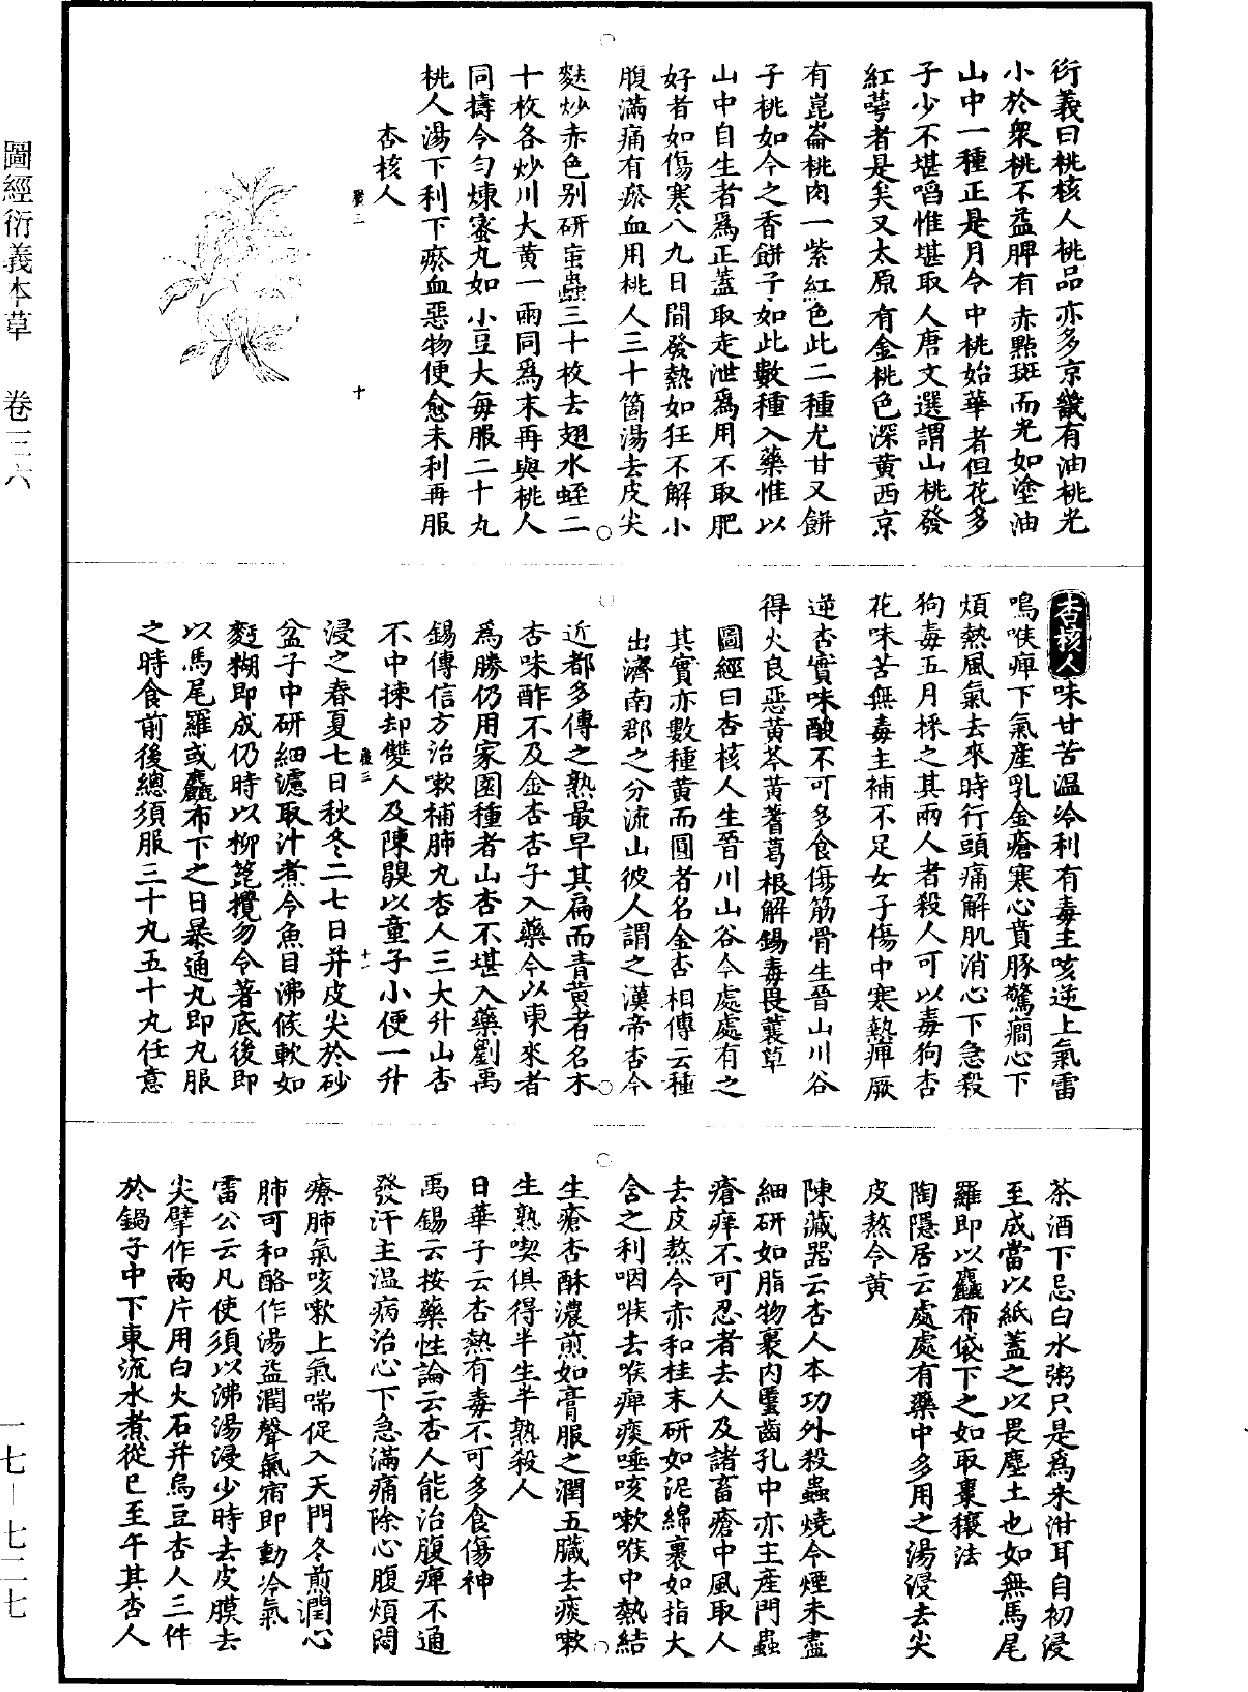 衍義曰桃核人桃品亦多京畿有油桃光
小於衆桃不益脾有赤點斑而光如塗油
山中一種正是月令中桃始華者但花多
子少不堪啗惟堪取人唐文選謂山桃發
紅萼者是矣又太原有金桃色深黄西京
有崑崙桃肉一紫紅色此二種尤甘又餅
子桃如今之香餅子如此數種入藥惟以
山中自生者爲正蓋取走泄爲用不取肥
好者如傷寒八九日間發熱如狂不解小
腹滿痛有瘀血用桃人三十箇湯去皮尖
麩炒赤色别研䖟蟲三十枚去翅水蛭二
十枚各炒川大黄一兩同爲末再與桃人
同擣令匀煉蜜丸如小豆大每服二十丸
桃人湯下利下瘀血惡物便愈未利再服
杏核人
十
杏核人味甘苦温冷利有毒主咳逆上氣雷
鳴喉痺下氣産乳金瘡寒心賁豚驚癎心下
煩熱風氣去來時行頭痛解肌消心下急殺
狗毒五月採之其兩人者殺人可以毒狗杏
花味苦無毒主補不足女子傷中寒熱痺厥
逆杏實味酸不可多食傷筋骨生晉山川谷
得火良惡黄芩黄蓍葛根解錫毒畏蘘草
圖經曰杏核人生晉川山谷今處處有之
其實亦數種黄而圓者名金杏相傳云種
出濟南郡之分流山彼人謂之漢帝杏今
近都多傳之熟最早其扁而青黄者名木
杏味酢不及金杏杏子入藥今以東來者
爲勝仍用家園種者山杏不堪入藥劉禹
錫傳信方治嗽補肺丸杏人三大升山杏
不中揀却雙人及陳臭以童子小便一升
十一
浸之春夏七日秋冬二七日并皮尖於砂
盆子中研細濾取汁煮令魚目沸候軟如
麪糊即成仍時以柳篦攪勿令著底後即
以馬尾羅或麤布下之日暴通丸即丸服
之時食前後總須服三十丸五十丸任意
茶酒下忌白水粥只是爲米泔耳自初浸
至成當以紙蓋之以畏塵土也如無馬尾
羅即以麤布袋下之如取棗穰法
陶隱居云處處有藥中多用之湯浸去尖
皮熬令黄
陳藏器云杏人本功外殺蟲燒令煙未盡
細研如脂物裹内䘌齒孔中亦主産門蟲
瘡痒不可忍者去人及諸畜瘡中風取人
去皮熬令赤和桂末研如泥綿裹如指大
含之利咽喉去喉痺痰唾咳嗽喉中熱結
生瘡杏酥濃煎如膏服之潤五臟去痰嗽
生熟喫俱得半生半熟殺人
日華子云杏熱有毒不可多食傷神
禹錫云按藥性論云杏人能治腹痺不通
發汗主温病治心下急滿痛除心腹煩悶
療肺氣咳嗽上氣喘促入天門冬煎潤心
肺可和酪作湯益潤聲氣宿即動冷氣
雷公云凡使須以沸湯浸少時去皮膜去
尖擘作兩片用白火石并烏豆杏人三件
於鍋子中下東流水煮從巳至午其杏人
圖經衍義本草　卷三六
一七－七二七